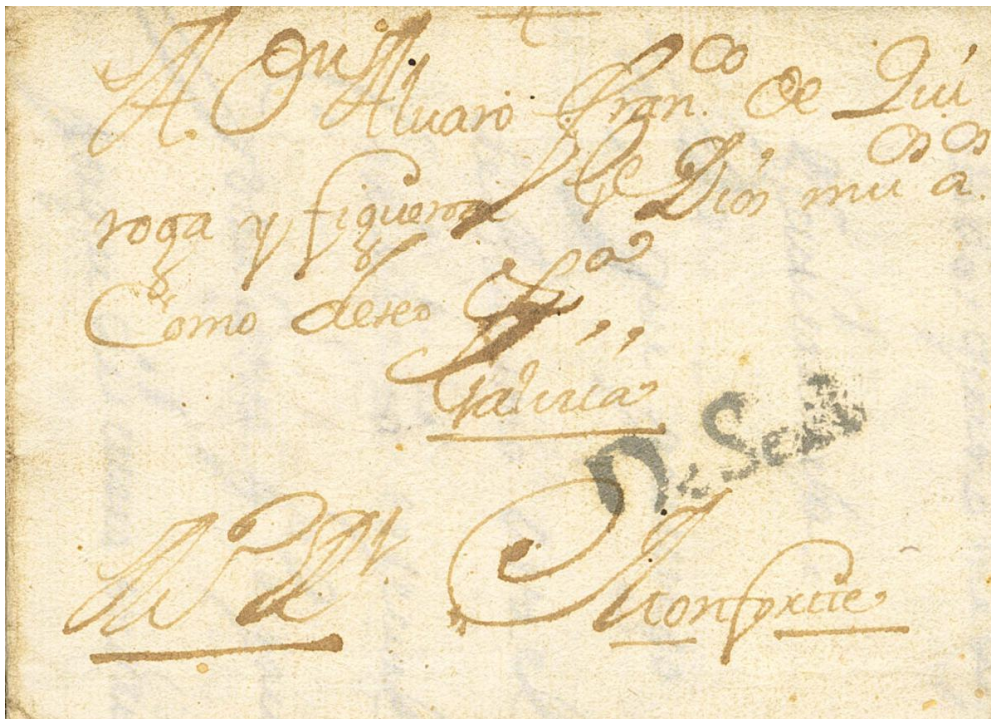 A Dn Alvaro Franco de Qui
roga y figueroa gue Dios mus as
Como deseo
Galicia
De Sevi
Monforte